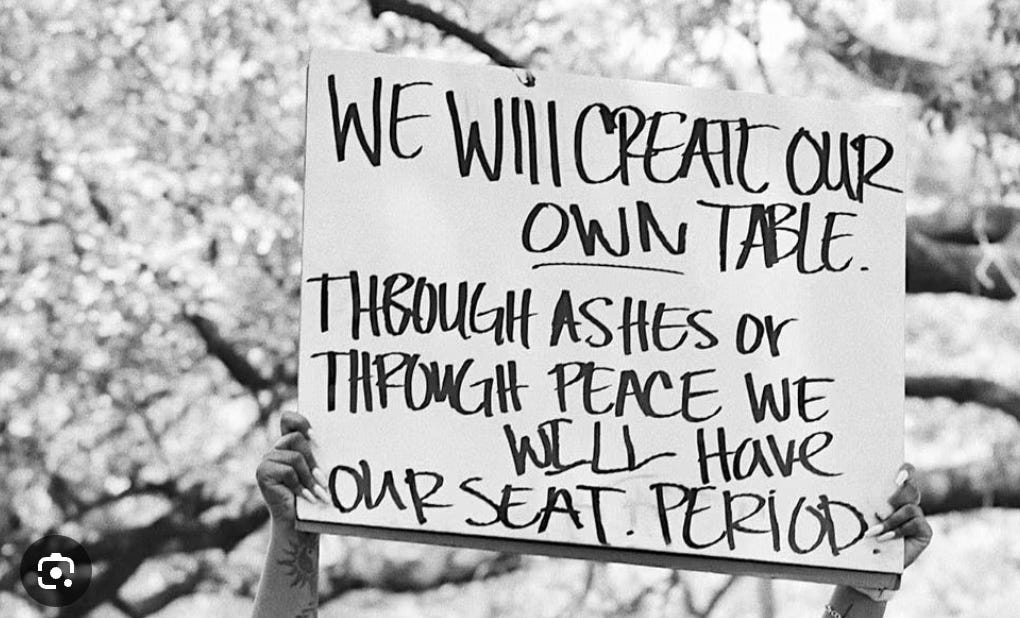 WE WIll CREATE OUR
OWN TABLE.
THROUGH ASHES or
THROUGH PEACE WE
WILL Have
OUR SEAT. PERiOD.